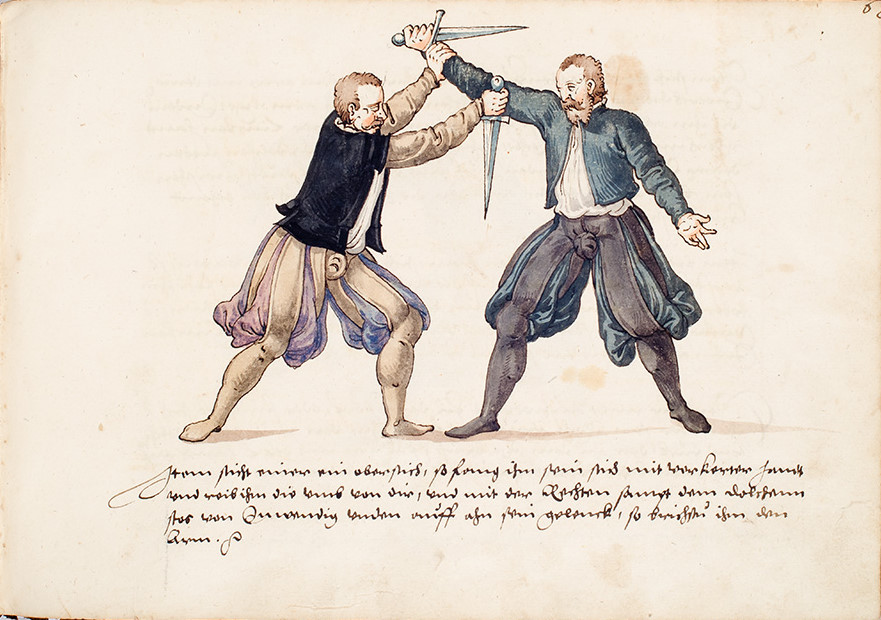 Item sticht einer ein oberstich, so fang ihn sein stich mit verkerter handt
vnd reib ihm die vmb von dir, vnd mit der Rechten sampt dem dolchenn
stos von Inwendig vnden auff ahn sein gelenck, so brichstu ihm den
Arm.